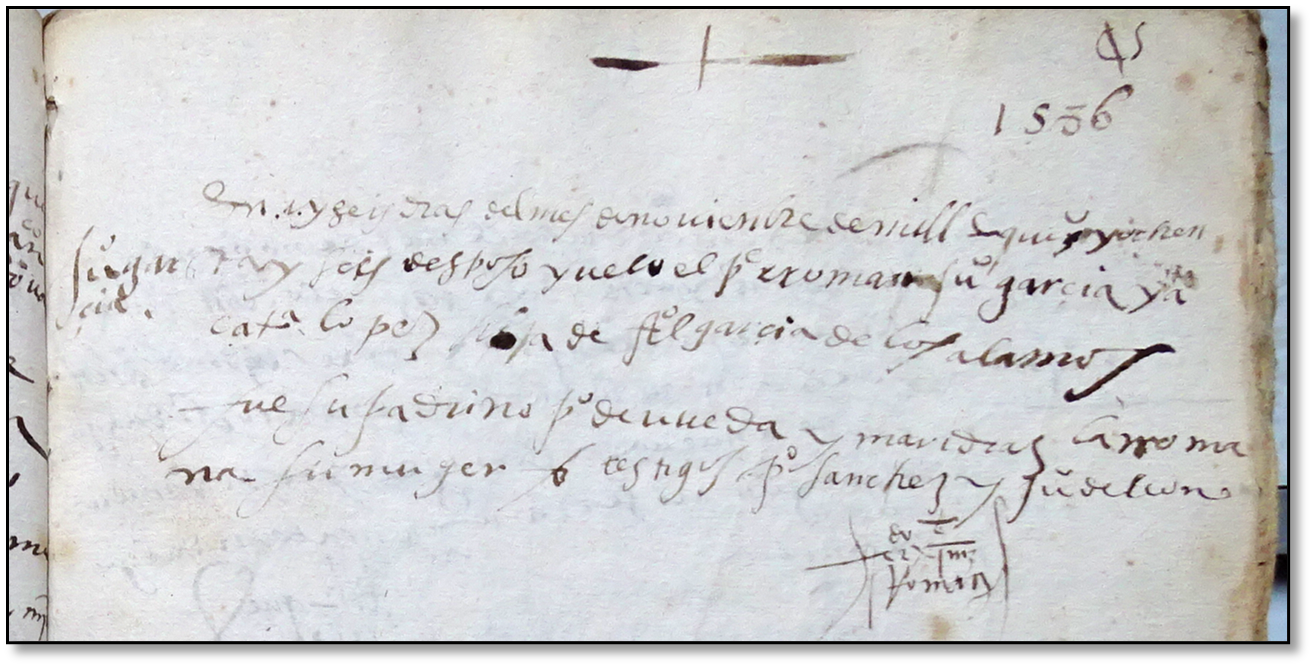 1586
En y seis dias del mes de noviembre de mill e quis y ochen
Ju° gar
cia.
ta y seis desposo y velo el p° rroman Ju° garcia y a
cat.ª lopez hija de fel garcia de los alamos
fue su padrino p° de uveda y mari diaz la rroma
na su muger testigos p° sanchez y Ju° de leon
Roman